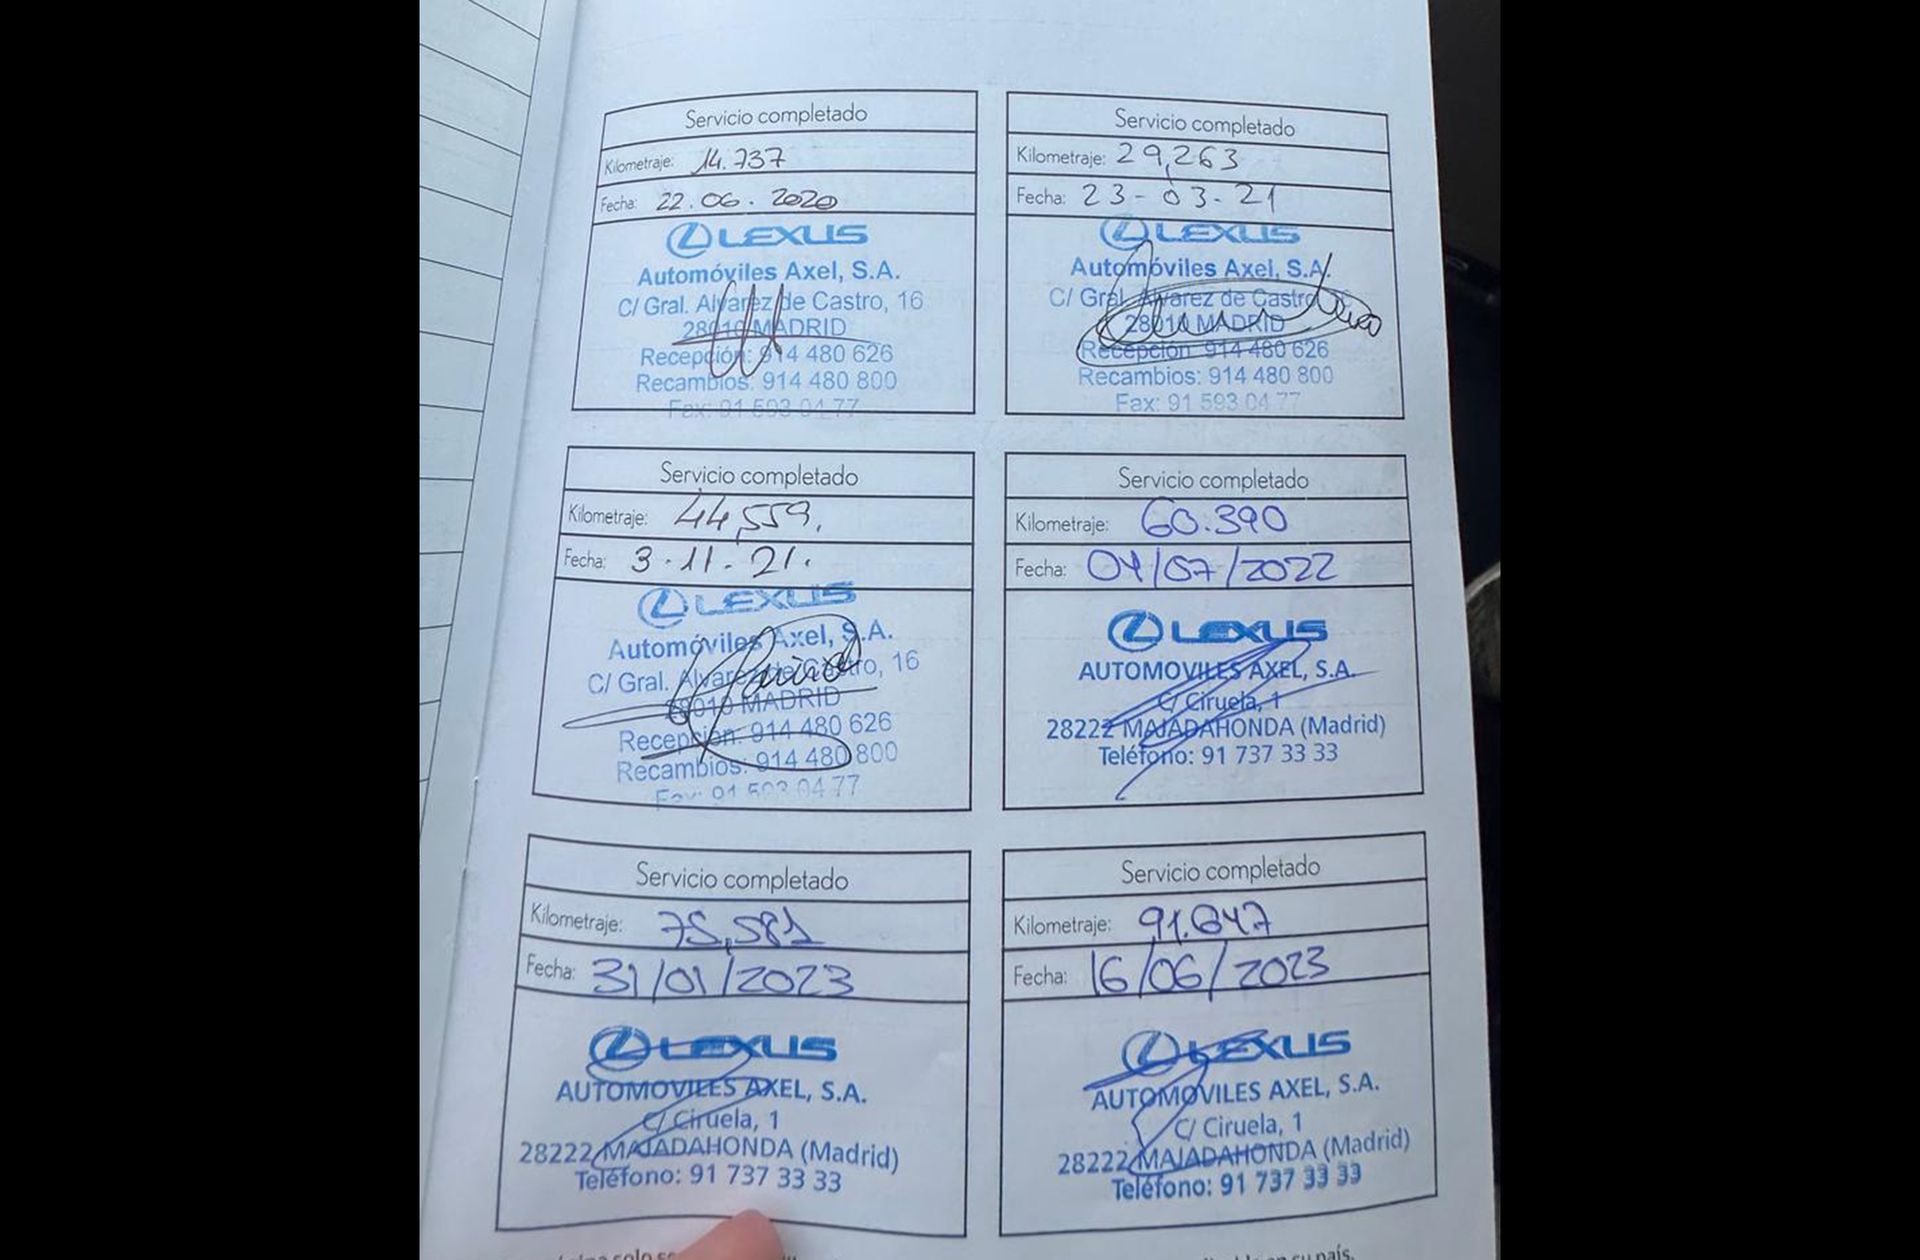 Servicio completado
Kilometraje: 14.737
Fecha: 22.06.2020
LEXUS
Automóviles Axel, S.A.
C/ Gral. Alvarez de Castro, 16
28010 MADRID
Recepción: 914 480 626
Recambios: 914 480 800
Fax: 91 593 04 77
Servicio completado
Kilometraje: 29,263
Fecha: 23-03-21
LEXUS
Automóviles Axel, S.A.
C/ Gral. Alvarez de Castro, 16
28010 MADRID
Recepción: 914 480 626
Recambios: 914 480 800
Fax: 91 593 04 77
Servicio completado
Kilometraje: 44,559.
Fecha: 3.11.21.
LEXUS
Automóviles Axel, S.A.
C/ Gral. Alvarez de Castro, 16
28010 MADRID
Recepción: 914 480 626
Recambios: 914 480 800
Fax: 91 593 04 77
Servicio completado
Kilometraje: 60.390
Fecha: 04/07/2022
LEXUS
AUTOMOVILES AXEL, S.A.
C/ Ciruela, 1
28222 MAJADAHONDA (Madrid)
Teléfono: 91 737 33 33
Servicio completado
Kilometraje: 75,581
Fecha: 31/01/2023
LEXUS
AUTOMOVILES AXEL, S.A.
C/ Ciruela, 1
28222 MAJADAHONDA (Madrid)
Teléfono: 91 737 33 33
Servicio completado
Kilometraje: 91.647
Fecha: 16/06/2023
LEXUS
AUTOMOVILES AXEL, S.A.
C/ Ciruela, 1
28222 MAJADAHONDA (Madrid)
Teléfono: 91 737 33 33
solo
en su país.